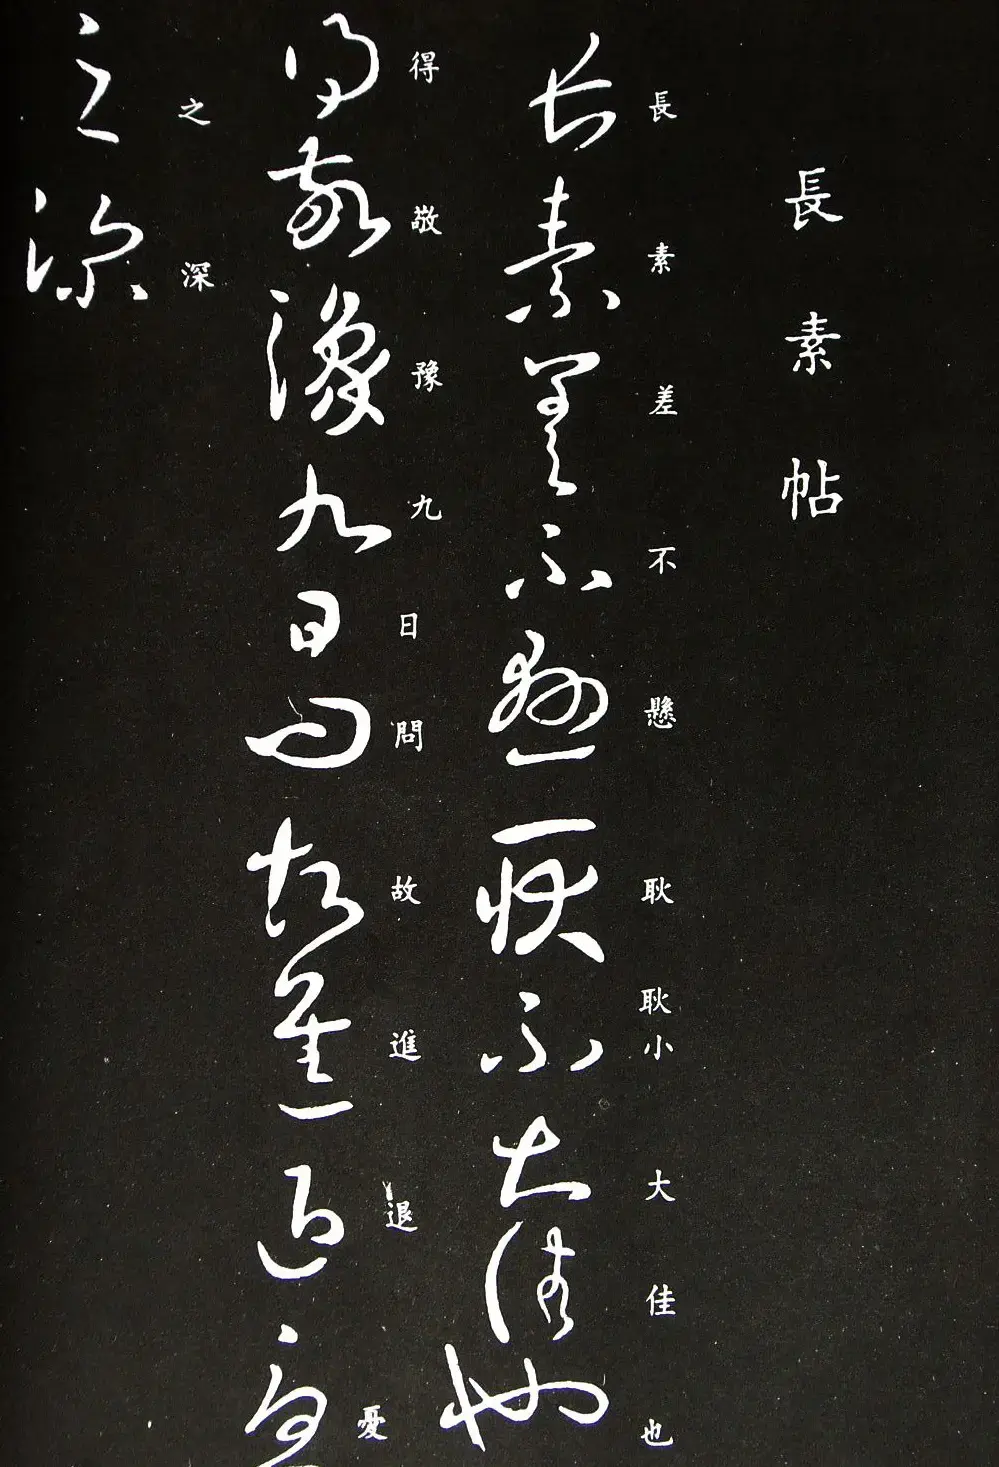 長素帖
長素差不懸耿耿小大佳也
得敬豫九日問故進退憂
之深